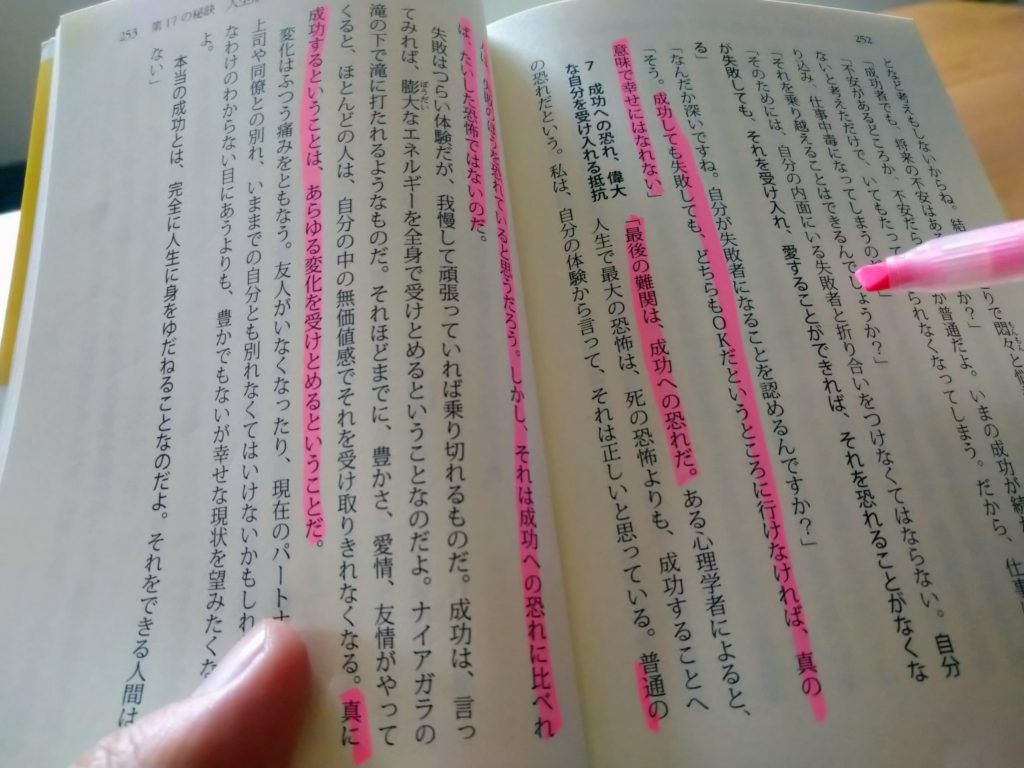 252
となると考えもしないからね。結
「成功者でも、将来の不安はあ
「不安があるどころか、不安だら
ないと考えただけで、いてもたって
り込み、仕事中毒になってしまうの
「それを乗り越えることはできるんでしょうか?」
「そのためには、自分の内面にいる失敗者と折り合いをつけなくてはならない。自分
が失敗しても、それを受け入れ、愛することができれば、それを恐れることがなくな
る」
「なんだか深いですね。自分が失敗者になることを認めるんですか?」
「そう。成功しても失敗しても、どちらもOKだというところに行けなければ、真の
意味で幸せにはなれない」
7 成功への恐れ、偉大
な自分を受け入れる抵抗
「最後の難関は、成功への恐れだ。ある心理学者によると、
人生で最大の恐怖は、死の恐怖よりも、成功することへ
の恐れだという。私は、自分の体験から言って、それは正しいと思っている。普通の
失敗のほうを恐れていると思うだろう。しかし、それは成功への恐れに比べれ
ば、たいした恐怖ではないのだ。
失敗はつらい体験だが、我慢して頑張っていれば乗り切れるものだ。成功は、言っ
てみれば、膨大なエネルギーを全身で受けとめるということなのだよ。ナイアガラの
滝の下で滝に打たれるようなものだ。それほどまでに、豊かさ、愛情、友情がやって
くると、ほとんどの人は、自分の中の無価値感でそれを受け取りきれなくなる。真に
成功するということは、あらゆる変化を受けとめるということだ。
変化はふつう痛みをともなう。友人がいなくなったり、現在のパートナ
上司や同僚との別れ、いままでの自分とも別れなくてはいけないかもしれ
なわけのわからない目にあうよりも、豊かでもないが幸せな現状を望みたくな
よ。
本当の成功とは、完全に人生に身をゆだねることなのだよ。それをできる人間は
ない」
253 第17の秘訣 人生